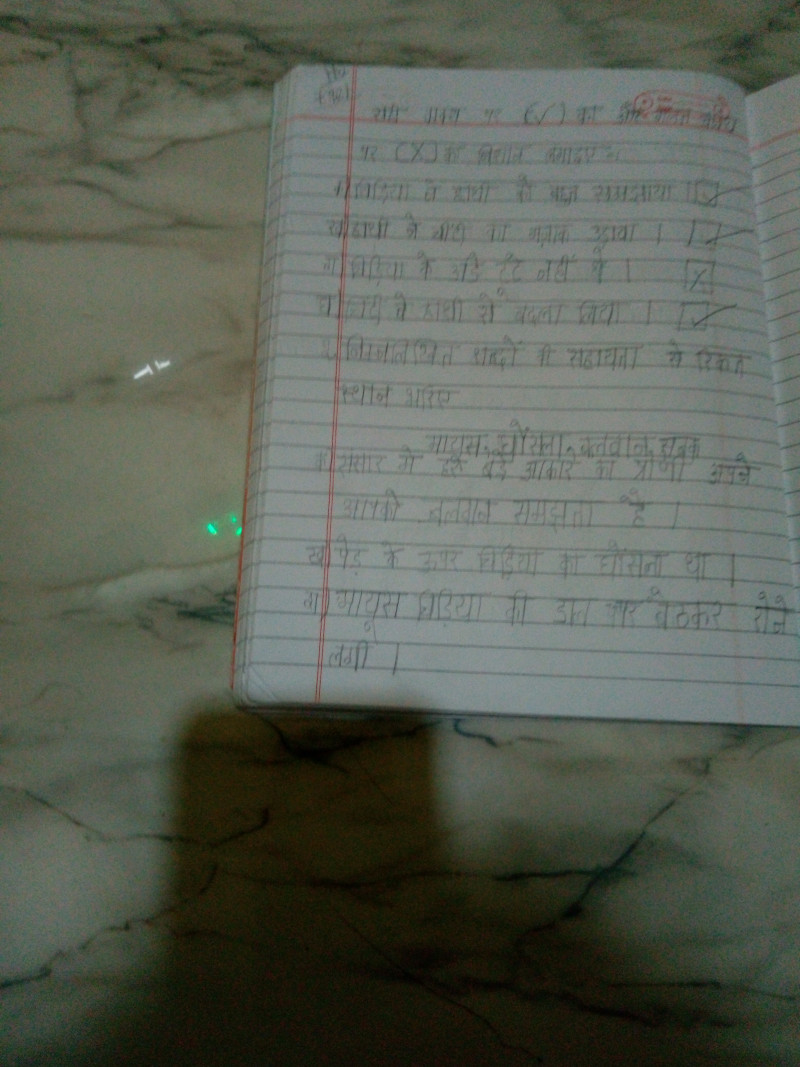 सही वाक्य पर (✓) का और गलत वाक्य
पर (X) का निशान लगाइए।
क) चिड़िया ने हाथी को बहुत समझाया। ✓
ख) हाथी ने चींटी का मज़ाक उड़ाया। ✓
ग) चिड़िया के अंडे टूटे नहीं थे। X
घ) चींटी ने हाथी से बदला लिया। ✓
2. निम्नलिखित शब्दों की सहायता से रिक्त
स्थान भरिए
मायूस, घोंसला, बलवान,
क) संसार में हर बड़े आकार का प्राणी अपने
आपको बलवान समझता है।
ख) पेड़ के ऊपर चिड़िया का घोंसला था।
ग) मायूस चिड़िया की डाल पर बैठकर रोने
लगी।